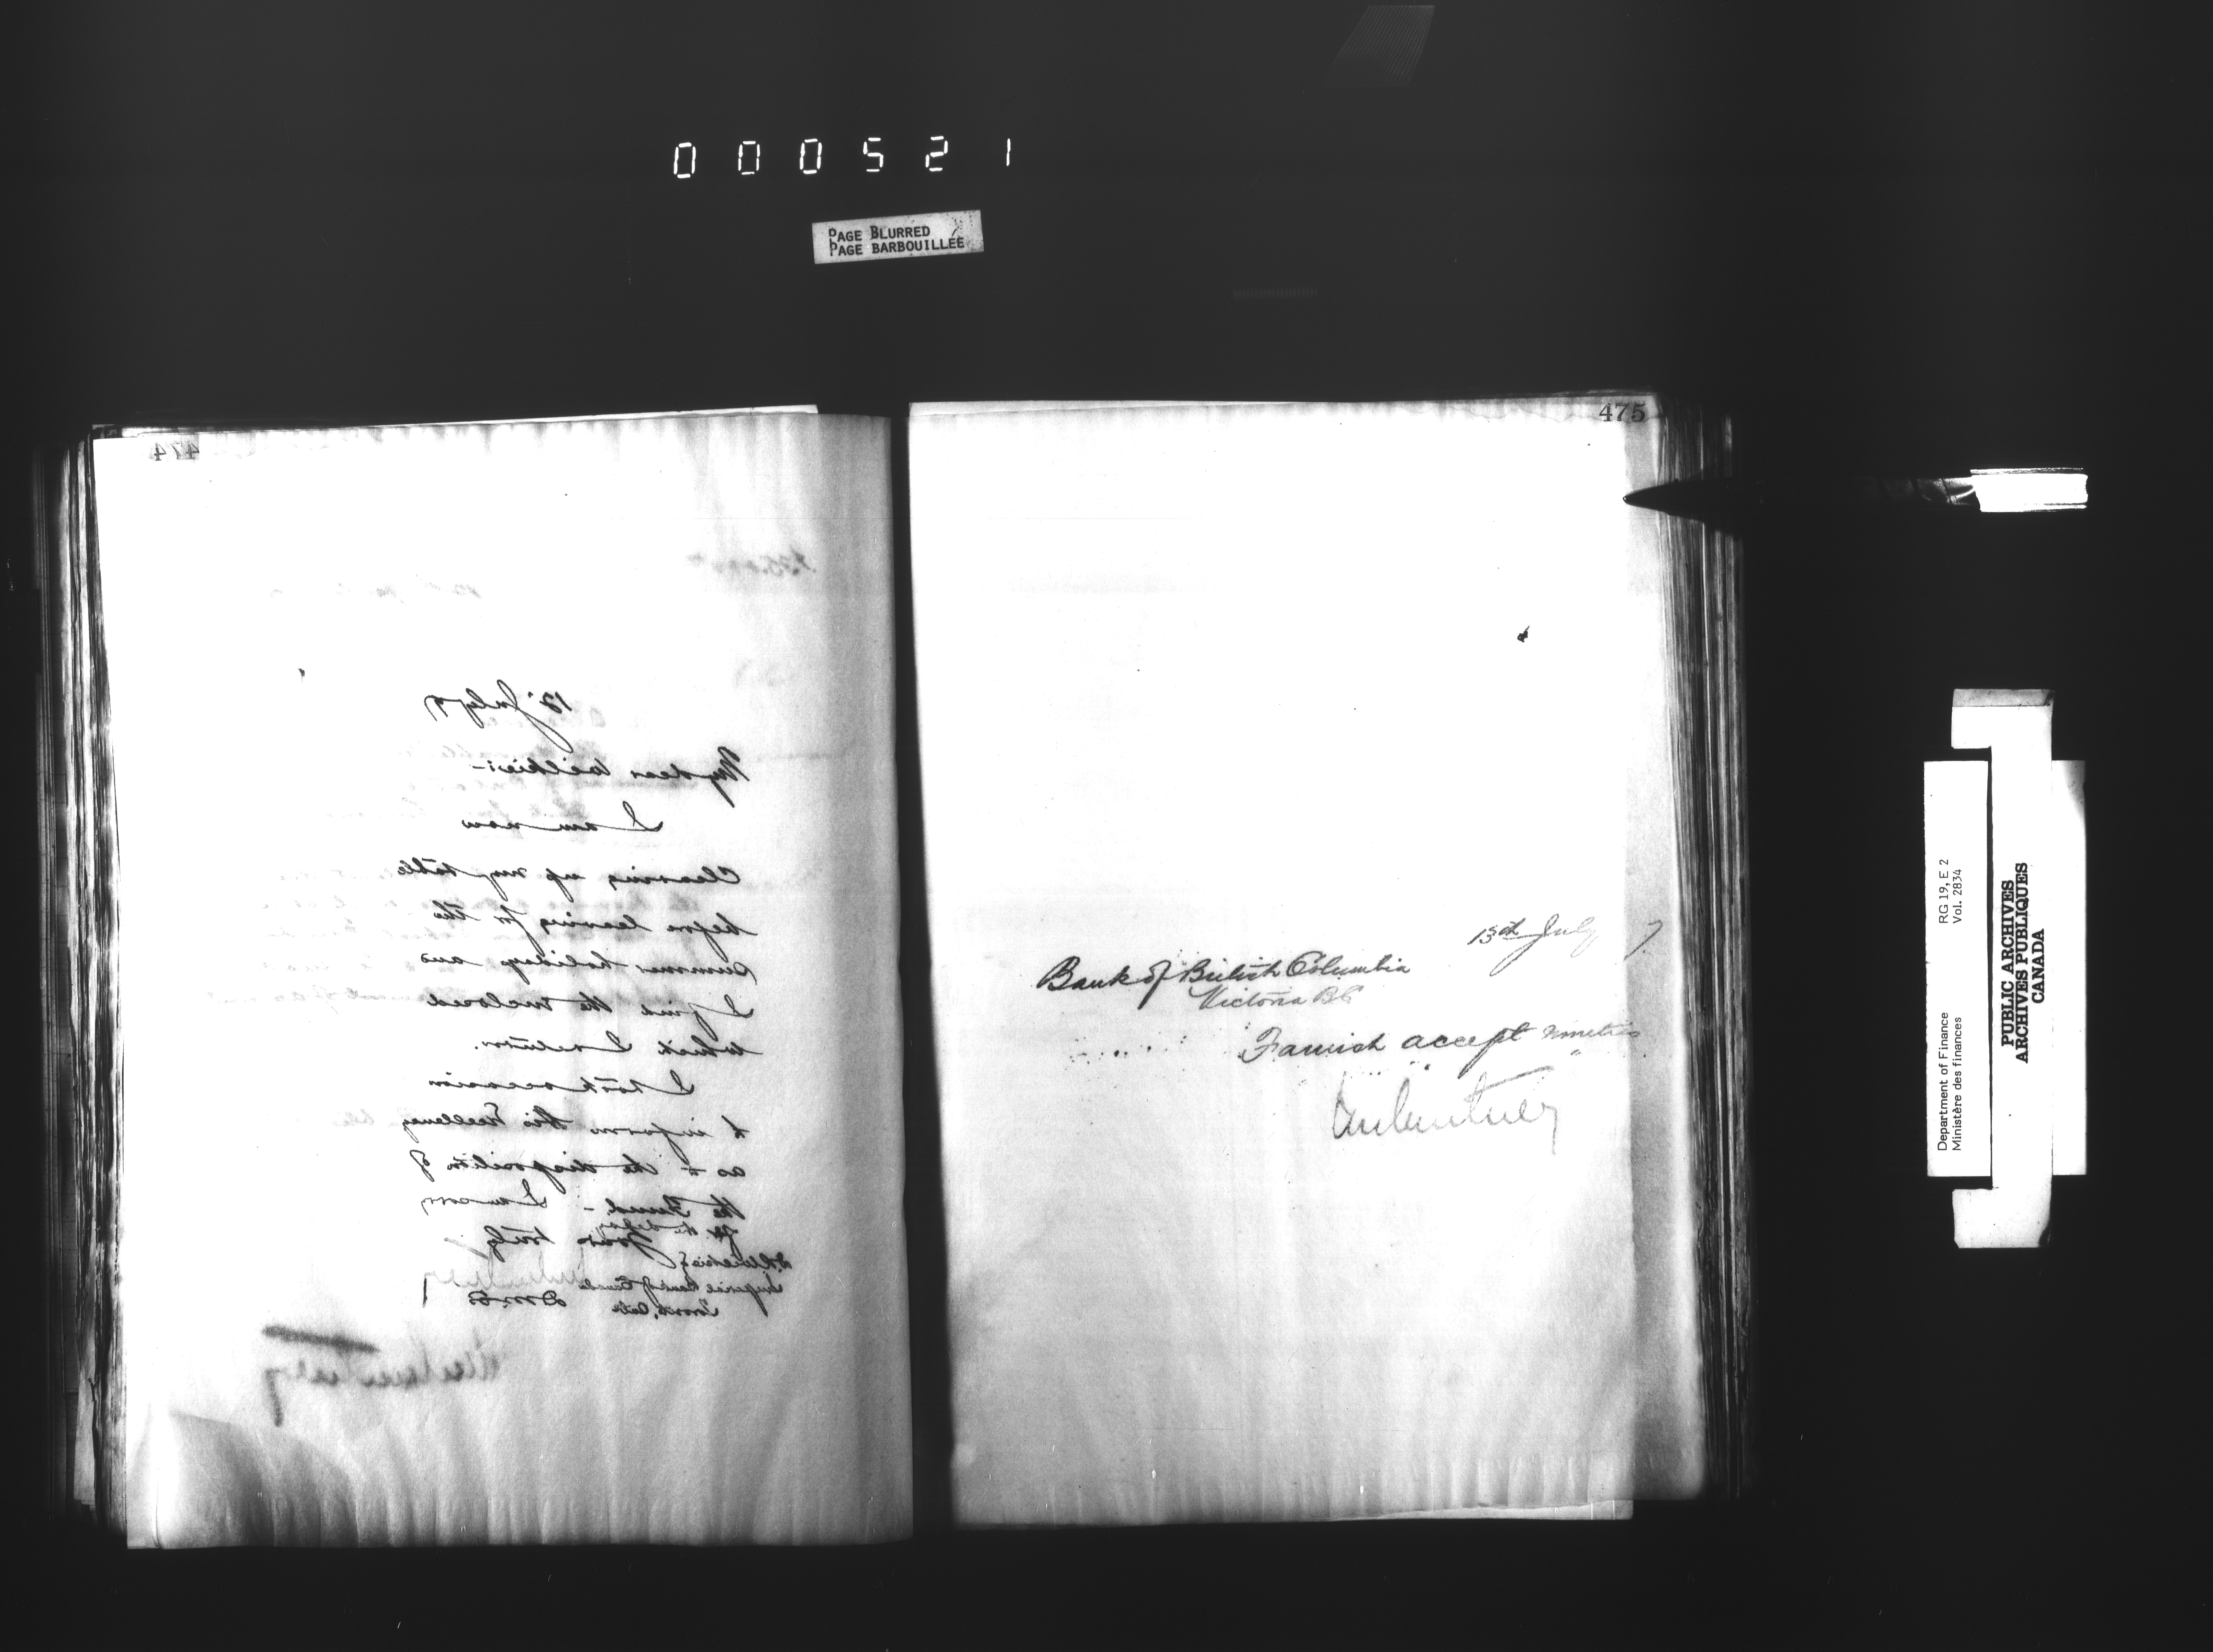 000521
PAGE BLURRED
PAGE BARBOUILLÉE
474
12 July
My dear Wilkie :-
I am now
Clearing up my table
before leaving for the
summer holidays and
I find the enclosed
which I return.
I took occasion
to inform His Excellency
as to the disposition of
the Fund - I am sorry
for the delay
Yours truly
D.R. Wilkie Esq
Imperial Bank of Canada
Toronto, Ont
D.M.F.
475
13th July 7
Bank of British Columbia
Victoria BC
accept
Department of Finance RG 19, E 2
Ministère des finances Vol. 2834
PUBLIC ARCHIVES
ARCHIVES PUBLIQUES
CANADA